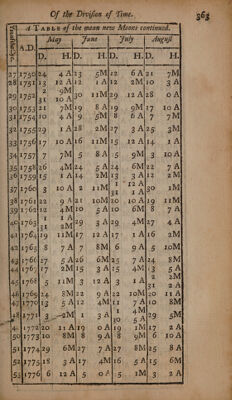 Of the Division of Time. 363
A TABLE of the mean new Moons continued.
A.D. May June July August
D. H. D. H. D. H. D. H.
27 1750 24 4 A 23 5M 22 6 A 21 7M
28 1751 13 12 A 12 1 A 12 2M 10 3 A
29 1752 2 9M 30 11M 29 12 A 28 0 A
31 10 A
30 1753 21 7M 19 8 A 19 9M 17 10 A
31 1754 10 4 A 9 5M 8 6 A 7 7M
32 1755 29 1 A 28 2M 27 3 A 25 3M
33 1756 17 10 A 16 11M 15 12 A 14 1 A
34 1757 7 7M 5 8 A 5 9M 3 10 A
35 1758 26 4M 24 5 A 24 6M 22 7 A
36 1759 15 1 A 14 2M 13 3 A 12 2M
37 1760 3 10 A 2 11M 1 12 A 30 1M
31 1 A
38 1761 22 9 A 21 10M 20 10 A 19 11M
39 1762 12 4M 10 5 A 10 6M 8 7 A
40 1763 1 1 A 29 3 A 29 4M 27 4 A
31 2M
41 1764 19 11M 17 12 A 17 1 A 16 2M
42 1765 8 7 A 7 8M 6 9 A 5 10M
43 1766 27 5 A 26 6M 25 7 A 24 8M
44 1767 17 2M 15 3 A 15 4M 13 5 A
45 1768 5 11M 3 12 A 3 1 A 2 2M
31 2 A
46 1769 24 8M 22 9 A 22 10M 20 11 A
47 1770 13 5 A 12 4M 11 7 A 10 8M
48 1771 3 2M 1 3 A 1 4M 29 5M
30 5 A
49 1772 20 11 A 19 0 A 19 1M 17 2 A
50 1773 10 8M 8 9 A 8 9M 6 10 A
51 1774 29 6M 27 7 A 27 8M 25 8 A
52 1775 18 3 A 17 4M 16 5 A 15 6M
53 1776 6 12 A 5 0 A 5 1M 3 2 A